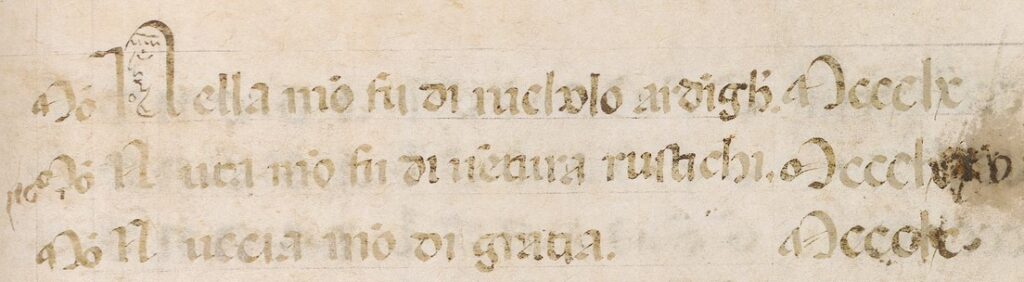 Mō Nella mō fu di nicholo ardigh̄. Mccclx
Mō Nuta mō fu di vētura rustichi. Mccclx
Mō Nuccia mō di gracia. Mccclx